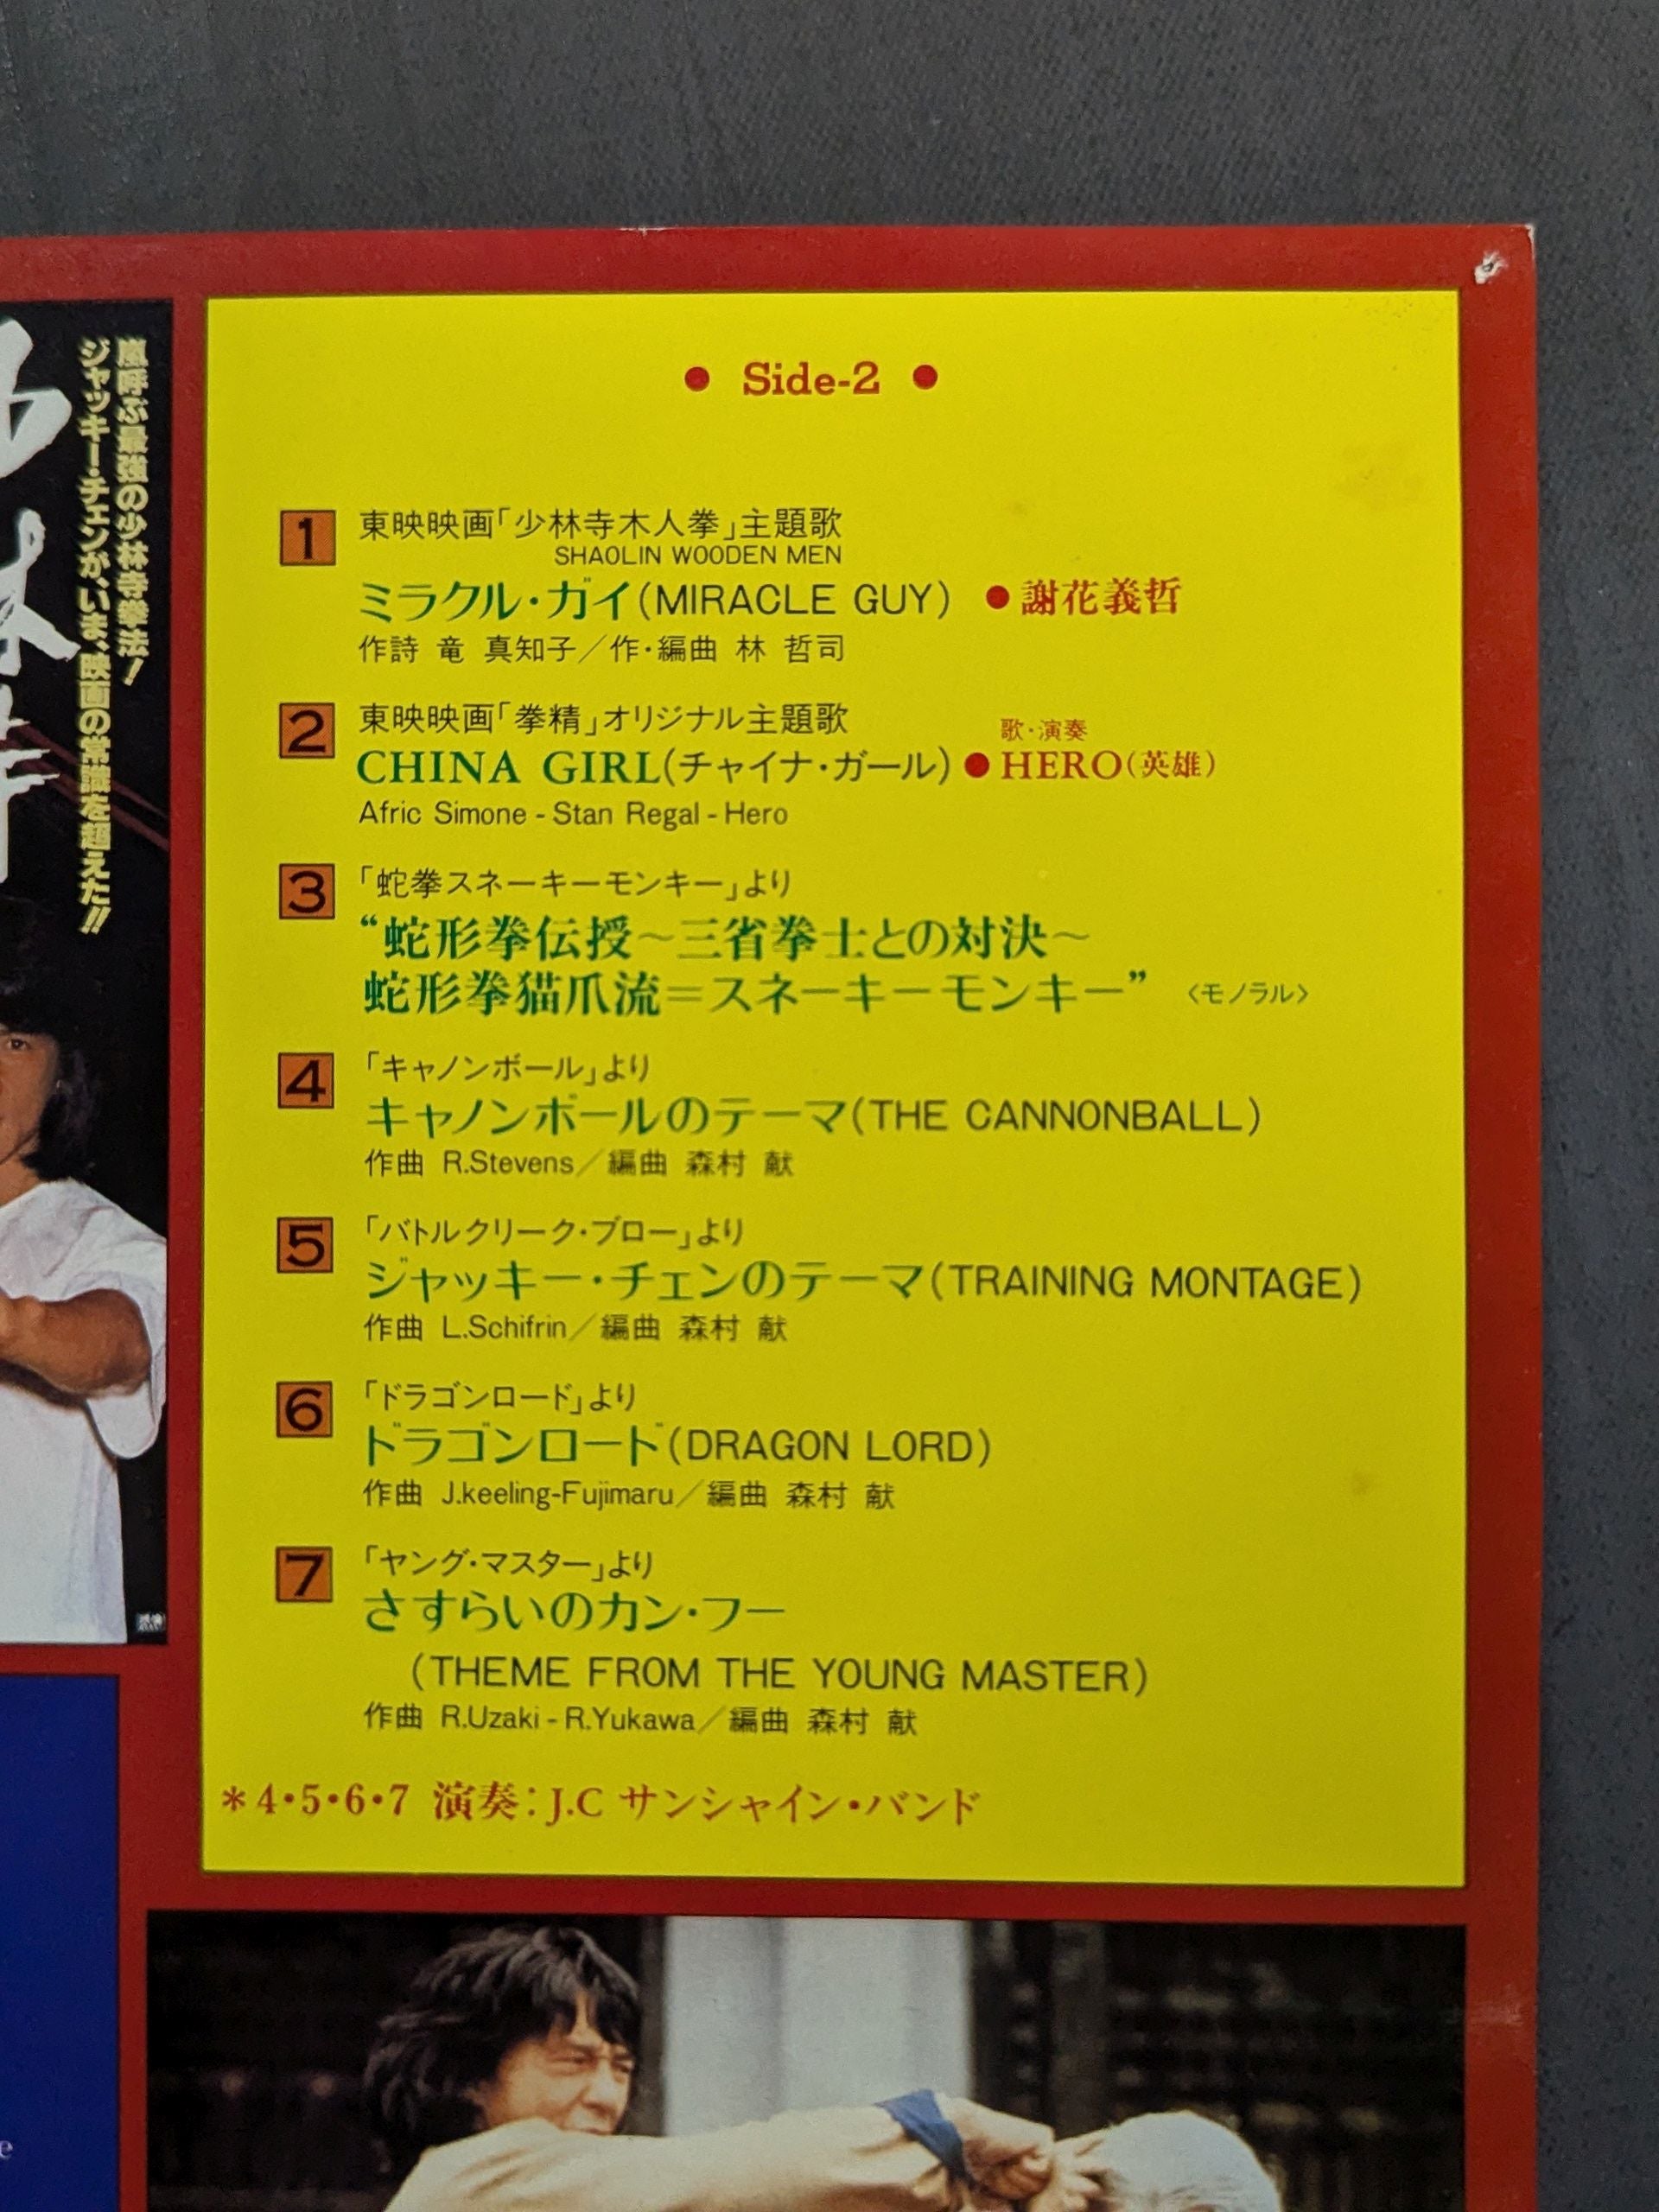 嵐呼ぶ最強の少林寺拳法!
ジャッキー・チェンが、いま、映画の常識を超えた!!
● Side-2 ●
1 東映映画「少林寺木人拳」主題歌
SHAOLIN WOODEN MEN
ミラクル・ガイ(MIRACLE GUY) ●謝花義哲
作詩 竜 真知子／作・編曲 林 哲司
2 東映映画「拳精」オリジナル主題歌
歌・演奏
CHINA GIRL(チャイナ・ガール) ●HERO(英雄)
Afric Simone - Stan Regal - Hero
3 「蛇拳スネーキーモンキー」より
“蛇形拳伝授～三省拳士との対決～
蛇形拳猫爪流＝スネーキーモンキー” 〈モノラル〉
4 「キャノンボール」より
キャノンボールのテーマ(THE CANNONBALL)
作曲 R.Stevens／編曲 森村 献
5 「バトルクリーク・ブロー」より
ジャッキー・チェンのテーマ(TRAINING MONTAGE)
作曲 L.Schifrin／編曲 森村 献
6 「ドラゴンロード」より
ドラゴンロード(DRAGON LORD)
作曲 J.keeling-Fujimaru／編曲 森村 献
7 「ヤング・マスター」より
さすらいのカン・フー
(THEME FROM THE YOUNG MASTER)
作曲 R.Uzaki - R.Yukawa／編曲 森村 献
＊4・5・6・7 演奏：J.C サンシャイン・バンド